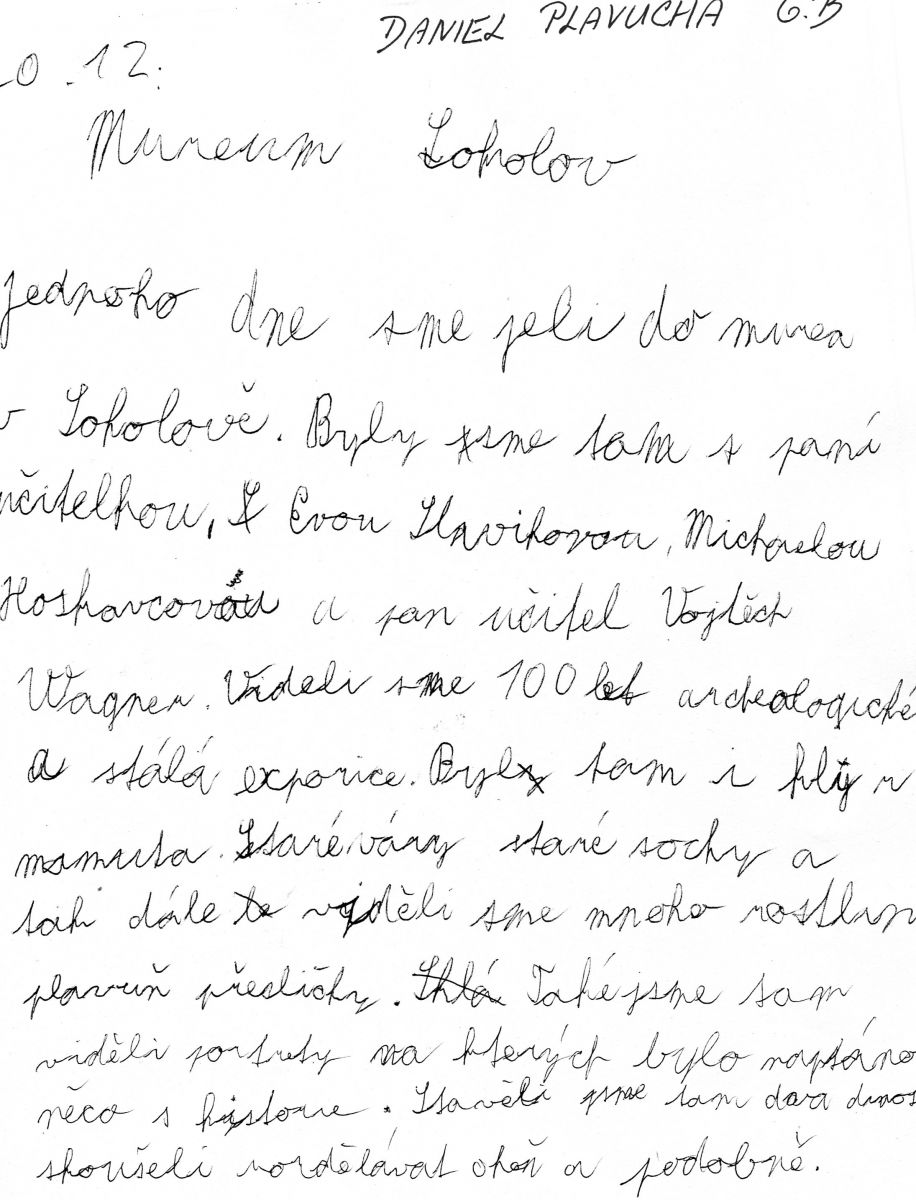 DANIEL PLAVUCHA 6.B
20.12.
Muzeum Sokolov
jednoho dne sme jeli do muzea
v Sokolově. Byly jsme tam s paní
učitelkou, Evou Slavikovou, Michaelou
Hoskavcovou a pan učitel Vojtěch
Wagner. Videli sme 100 let archeologické
a stálá expozice. Byly tam i kly z
mamuta. Staré vázy staré sochy a
tak dále viděli sme mnoho rostlin
plavuň přesličky. Také jsme tam
viděli portrety na kterých bylo napsáno
něco s historie. Stavěli jsme tam dva dinos
skoušeli rozdělávat oheň a podobně.